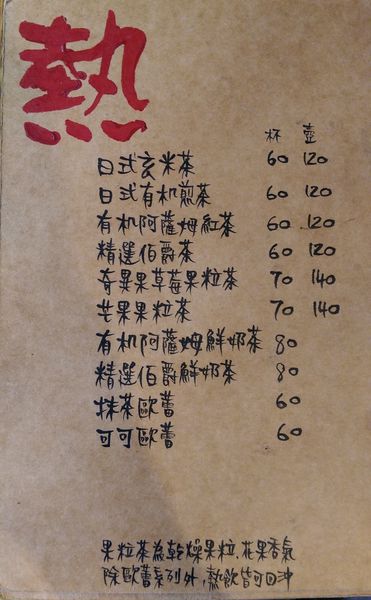 熱
杯 壺
日式玄米茶 60 120
日式有机煎茶 60 120
有机阿薩姆紅茶 60 120
精選伯爵茶 60 120
奇異果草莓果粒茶 70 140
芒果果粒茶 70 140
有机阿薩姆鮮奶茶 80
精選伯爵鮮奶茶 80
抹茶歐蕾 60
可可歐蕾 60
果粒茶為乾燥果粒,花果香氣
除歐蕾系列外,熱飲皆可回沖